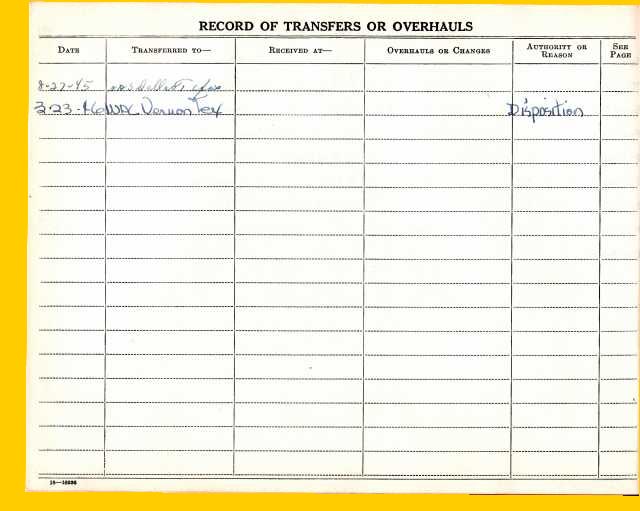 RECORD OF TRANSFERS OR OVERHAULS
DATE TRANSFERRED TO— RECEIVED AT— OVERHAULS OR CHANGES AUTHORITY OR REASON SEE PAGE
8-27-45 NAS Dallas, Texas
3-23-46 WAC Vernon Tex Disposition